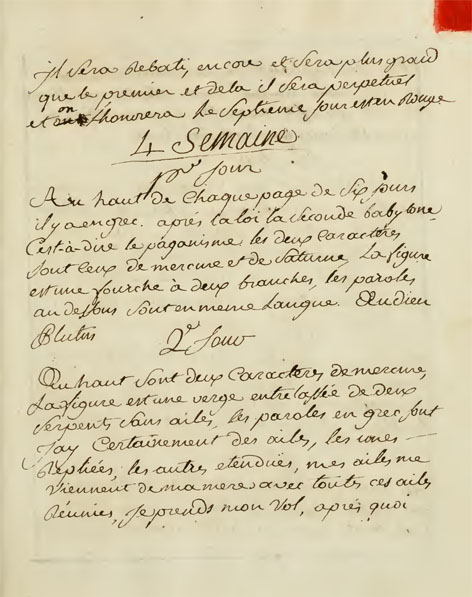 il sera Rebati, encore et sera plus grand
que le premier et dela il sera perpetuel
et on l'honorera le Septieme Jour est en Rouge
4 Semaine
1er Jour
Au haut de Chaque page de Six jours
il y a en grec. aprés la loi la seconde babylone
C'est-à-dire le paganisme, les deux Caracteres
sont Ceux de mercure et de Saturne. La figure
est une fourche à deux branches, les paroles
au dessous sont en meme Langue. Au dieu
Plutus
2e Jour
Au haut sont deux Caracteres de mercure,
La figure est une verge entrelassée de deux
Serpents Sans ailes, les paroles en grec sont
J'ay Certainement des ailes, les unes
Repliées, les autres etenduës, mes ailes me
Viennent de ma mere avec toutes ces ailes
Réunies, Je prends mon Vol, aprés quoi